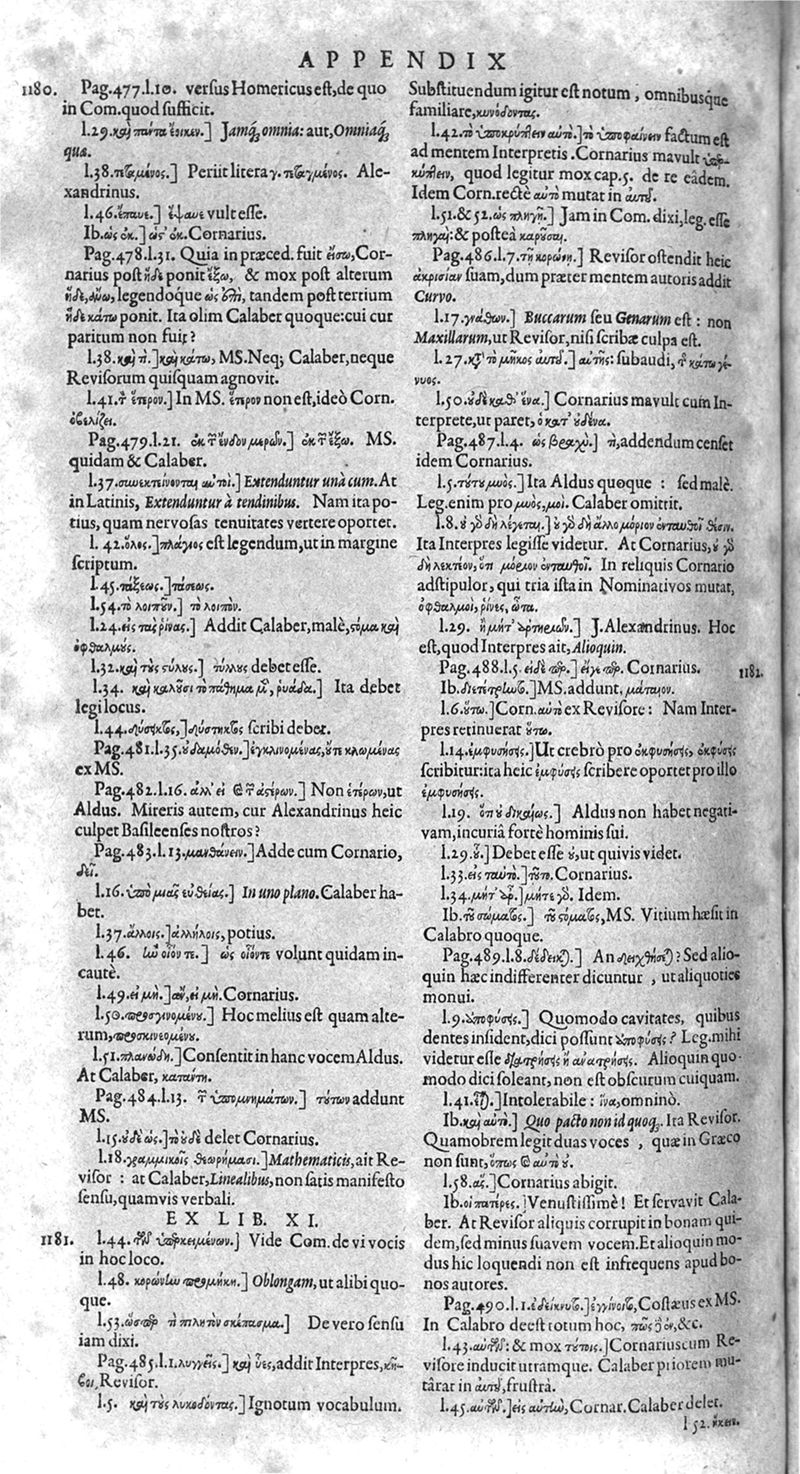 APPENDIX
1180. Pag.477.l.10. versus Homericus est, de quo
in Com. quod sufficit.
l.29. καὶ πάντα ἔοικεν.] Jamq; omnia: aut, Omniaq;
quæ.
l.38. πεζαμένος.] Periit litera γ. πεζαγμένος. Ale-
xandrinus.
l.46. ἔπαυε.] ἔψαυε vult esse.
Ib. ὡς ὀκ.] ὡς ὀκ. Cornarius.
Pag.478.l.31. Quia in præced. fuit εἴσω, Cor-
narius post ἤδε ponit ἔξω, & mox post alterum
ἤδε, legendoque ὡς ἐπὶ, tandem post tertium
ἤδε κάτω ponit. Ita olim Calaber quoque: cui cur
paritum non fuit?
l.38. καὶ τι.] καὶ κάτω, MS. Neq; Calaber, neque
Revisorum quisquam agnovit.
l.41. τ ἕτερον.] In MS. ἕτερον non est, ideò Corn.
ὀβελίζει.
Pag.479.l.21. ἐκ τ ἔνδον μερῶν.] ἐκ τ ἔξω. MS.
quidam & Calaber.
l.37. συνεκτείνονται αὐτοί.] Extenduntur unà cum. At
in Latinis, Extenduntur à tendinibus. Nam ita po-
tius, quam nervosas tenuitates vertere oportet.
l. 42. ὅλος.] πλάγιος est legendum, ut in margine
scriptum.
l.45. τάξεως.] τάσεως.
l.54. τὸ λοιποῦν.] τὸ λοιπὸν.
l.24. εἰς τὰς ῥίνας.] Addit Calaber, malè, στόμα καὶ
ὀφθαλμούς.
l.32. καὶ τοὺς στύλους.] τύλλους debet esse.
l.34. καὶ καλοῦσι τὸ πάθημα , ῥυάδα.] Ita debet
legi locus.
l.44. scribi debet.
Pag.481.l.35. οὐδαμόθεν.] ἐγκλινομένας, οὔτε κλωμένας
ex MS.
Pag.482.l.16. ἀλλ' εἰ ἀστέρων.] Non ἑτέρων, ut
Aldus. Mireris autem, cur Alexandrinus heic
culpet Basileenses nostros?
Pag.483.l.13. μανθάνειν.] Adde cum Cornario,
δεῖ.
l.16. ὑπὸ μιᾶς εὐθείας.] In uno plano. Calaber ha-
bet.
l.37. ἄλλοις.] ἀλλήλοις, potius.
l.46. οἷόν τε.] ὡς οἷόντε volunt quidam in-
cautè.
l.49. εἰ μὴ.] ἂν, εἰ μὴ. Cornarius.
l.50. προσγινομένου.] Hoc melius est quam alte-
rum, προσκινεομένου.
l.51. πλανώδη.] Consentit in hanc vocem Aldus.
At Calaber, κατάντη.
Pag.484.l.13. τ ὑπομνημάτων.] τούτων addunt
MS.
l.15. οὐδὲ ὡς.] τὸ οὐδὲ delet Cornarius.
l.18. γραμμικοῖς θεωρήμασι.] Mathematicis, ait Re-
visor: at Calaber, Linealibus, non satis manifesto
sensu, quamvis verbali.
EX LIB. XI.
1181. l.44. τῶν ὑπερκειμένων.] Vide Com. de vi vocis
in hoc loco.
l.48. κορώνην προμήκη.] Oblongam, ut alibi quo-
que.
l.53. ὥσπερ τι πλητὸν σκέπασμα.] De vero sensu
iam dixi.
Pag.485.l.1. λυγγεῖς.] καὶ ὕες, addit Interpres, κῆ-
βοι, Revisor.
l.5. καὶ τοὺς λυκοδόντας.] Ignotum vocabulum.
Substituendum igitur est notum, omnibusque
familiare, κυνόδοντας.
l.42. τὸ ὑποκρύπτειν αὐτὸ.] τὸ ὑποφαίνειν factum est
ad mentem Interpretis. Cornarius mavult ὑπερ-
κύπτειν, quod legitur mox cap.5. de re eâdem.
Idem Corn. rectè αὐτὸ mutat in αὐτοῦ.
l.51.& 52. ὡς πληγῇ.] Jam in Com. dixi, leg. esse
πληγαὶ: & posteà καροῦσαι.
Pag.486.l.7. τῇ κορώνῃ.] Revisor ostendit heic
ἀκρισίαν suam, dum præter mentem autoris addit
Curvo.
l.17. γνάθων.] Buccarum seu Genarum est: non
Maxillarum, ut Revisor, nisi scribæ culpa est.
l.27. κατὰ τὸ μῆκος αὐτοῦ.] αὐτῆς: subaudi, τ κάτω γέ-
νυος.
l.50. οὐδὲ καθ' ἕνα.] Cornarius mavult cum In-
terprete, ut paret, ὁ κατ' οὐδένα.
Pag.487.l.4. ὡς βραχὺ.] τι, addendum censet
idem Cornarius.
l.5. τούτου μυὸς.] Ita Aldus quoque: sed malè.
Leg. enim pro μυὸς, μοὶ. Calaber omittit.
l.8. οὐ γὰρ δὴ λέγεται.] οὐ γὰρ δὴ ἄλλο μόριον ἐνταυθοῖ θέσιν.
Ita Interpres legisse videtur. At Cornarius, οὐ γὰρ
δὴ λεκτέον, ὅτι μόριον ἐνταυθοῖ. In reliquis Cornario
adstipulor, qui tria ista in Nominativos mutat,
ὀφθαλμοὶ, ῥίνες, ὦτα.
l.29. ἢ μήτ' ἀρτηριῶν.] J. Alexandrinus. Hoc
est, quod Interpres ait, Alioquin.
1182. Pag.488.l.5. εἰ δὲ περ.] εἴγε περ. Cornarius.
Ib. διεπέπλωτο.] MS. addunt, μάταιον.
l.6. οὕτω.] Corn. αὐτὸ ex Revisore: Nam Inter-
pres retinuerat οὕτω.
l.14. ἐμφυσήσης.] Ut crebrò pro ἐκφυσήσης, ἐκφύσης
scribitur: ita heic ἐμφύσης scribere oportet pro illo
ἐμφυσήσης.
l.19. ὅπου δικαίως.] Aldus non habet negati-
vam, incuriâ fortè hominis sui.
l.29. οὗ.] Debet esse οὐ, ut quivis videt.
l.33. εἰς ταὐτὸ.] τοῦτο. Cornarius.
l.34. μήτ' ἄρ.] μήτε γὰρ. Idem.
Ib. τοῦ σώματος.] τοῦ στόματος, MS. Vitium hæsit in
Calabro quoque.
Pag.489.l.8. δέδεικται.] An λειχθήσεται? Sed alio-
quin hæc indifferenter dicuntur, ut aliquoties
monui.
l.9. ὑποφύσης.] Quomodo cavitates, quibus
dentes insident, dici possunt ὑποφύσεις? Leg. mihi
videtur esse διατρήσεις ἢ ἀνατρήσεις. Alioquin quo-
modo dici soleant, non est obscurum cuiquam.
l.41. Intolerabile: ἵνα, omninò.
Ib. καὶ αὐτὸ.] Quo pacto non id quoq;. Ita Revisor.
Quamobrem legit duas voces, quæ in Græco
non sunt, ὅπως αὐτὸ οὐ.
l.58. Cornarius abigit.
Ib. οἱ πατέρες.] Venustissimè! Et servavit Cala-
ber. At Revisor aliquis corrupit in bonam qui-
dem, sed minus suavem vocem. Et alioquin mo-
dus hic loquendi non est infrequens apud bo-
nos autores.
Pag.490.l.1. ἐδείκνυτο.] ἐγγίνοιτο, Costæus ex MS.
In Calabro deest totum hoc, πῶς &c.
l.43. αὐτῶν: & mox τόποις.] Cornarius cum Re-
visore inducit utramque. Calaber priorem mu-
târat in αὐτοῦ, frustrà.
l.45. αὐτῶν.] εἰς αὐτὴν, Cornar. Calaber delet.
l 52. ἥκειν.